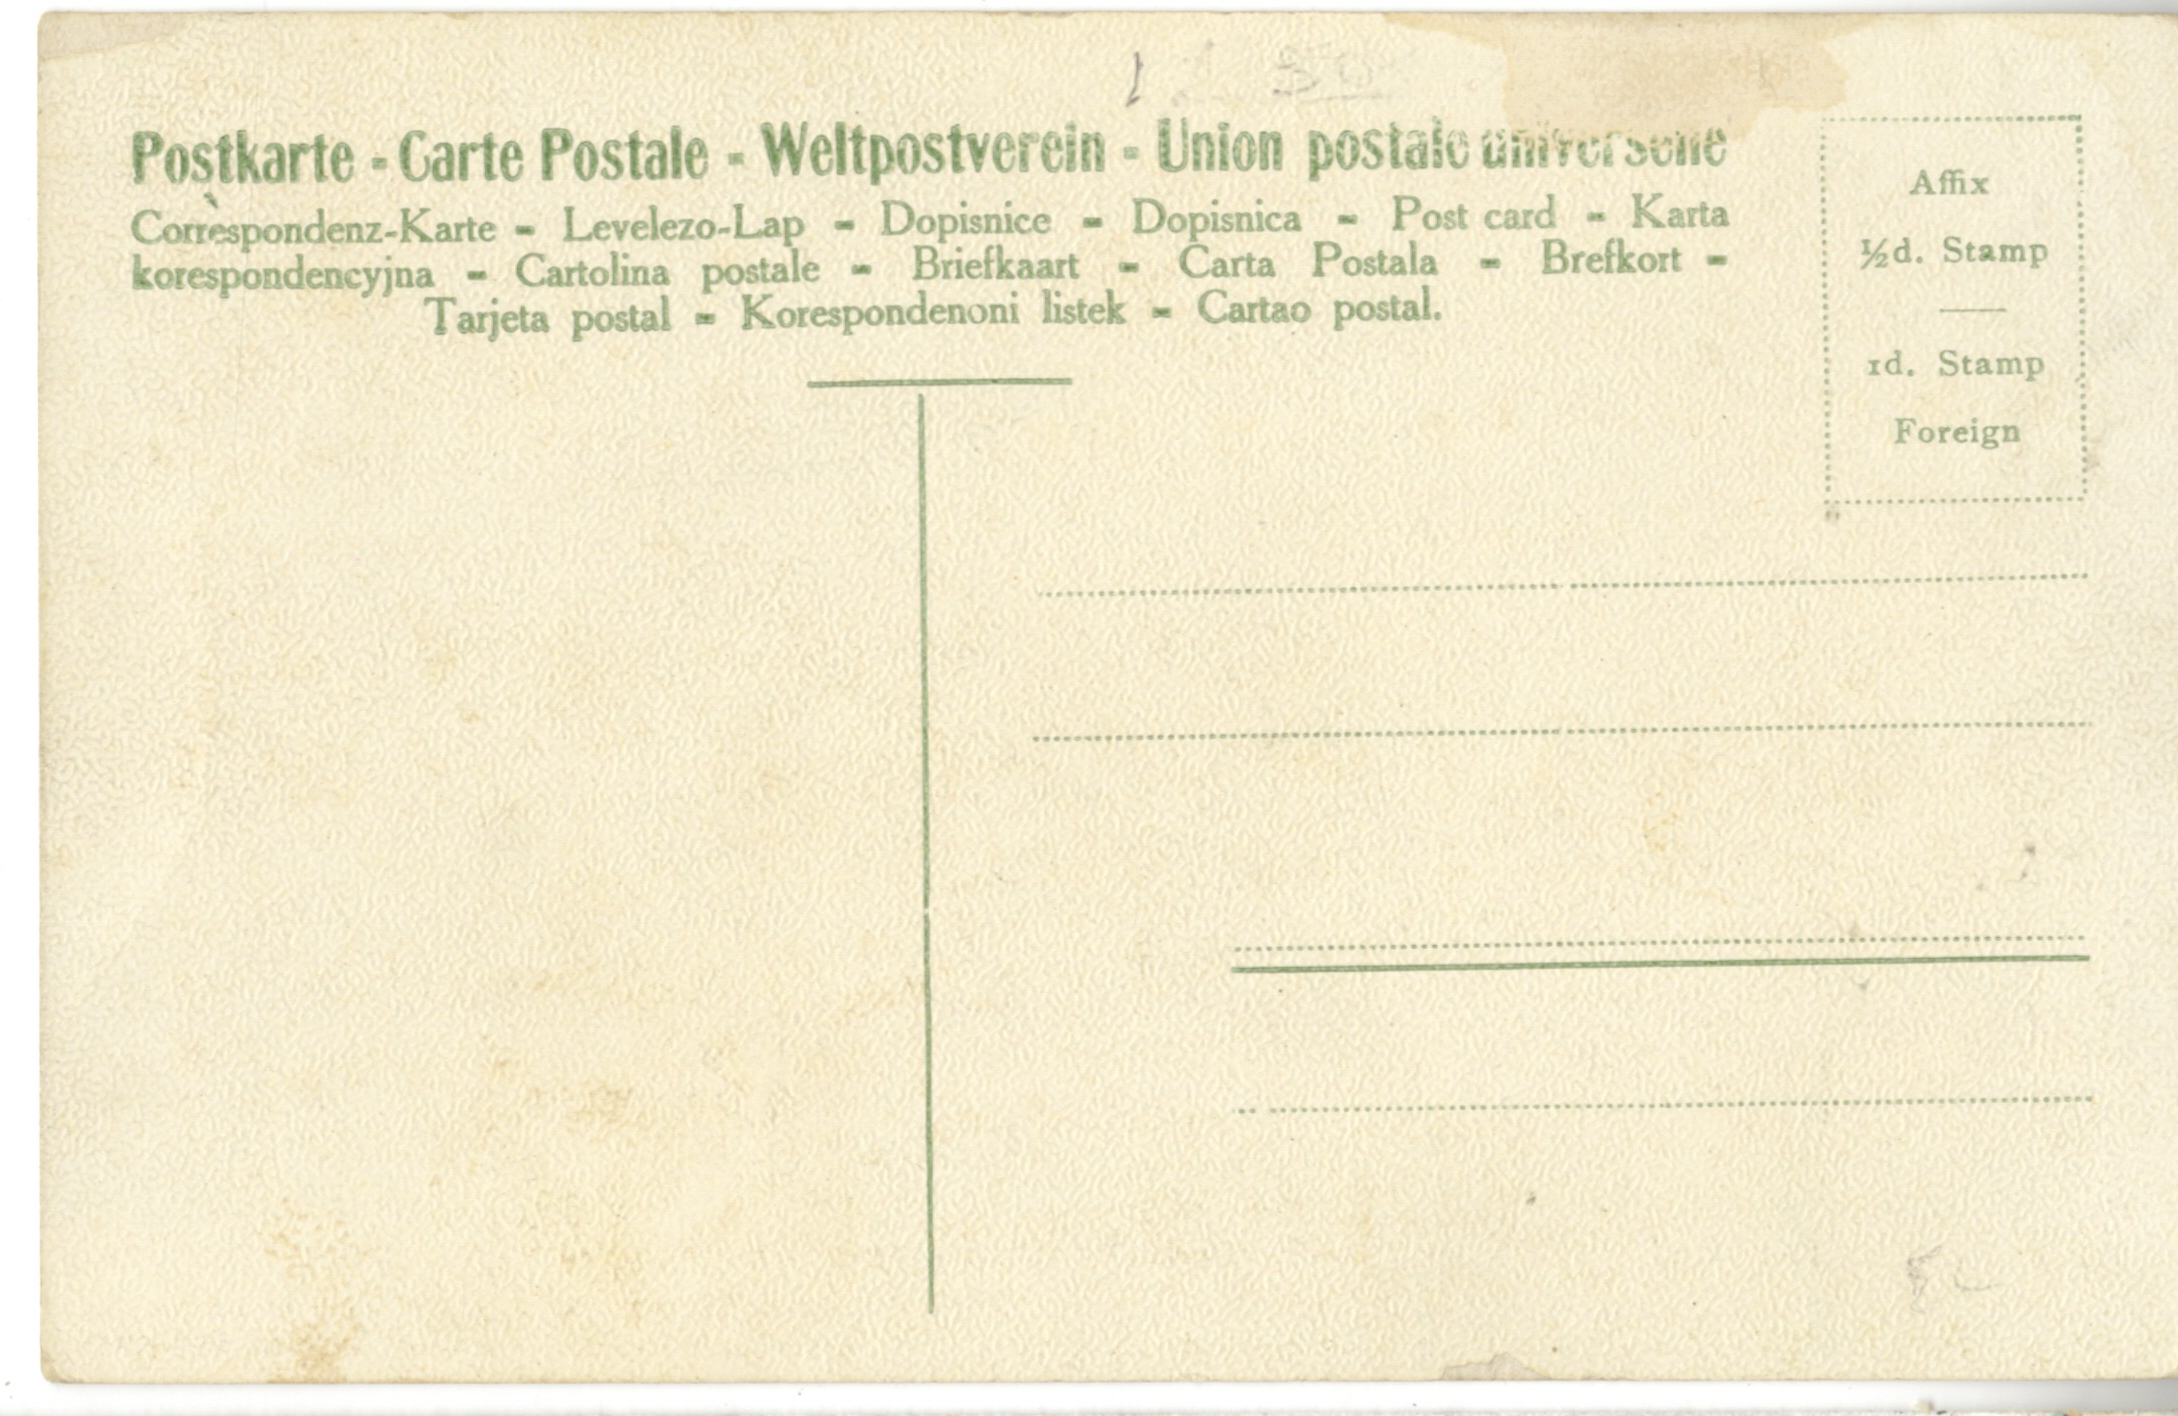 Postkarte - Carte Postale - Weltpostverein - Union postale universelle
Correspondenz-Karte - Levelezo-Lap - Dopisnice - Dopisnica - Post card - Karta
korespondencyjna - Cartolina postale - Briefkaart - Carta Postala - Brefkort -
Tarjeta postal - Korespondenoni listek - Cartao postal.
Affix
½d. Stamp
1d. Stamp
Foreign